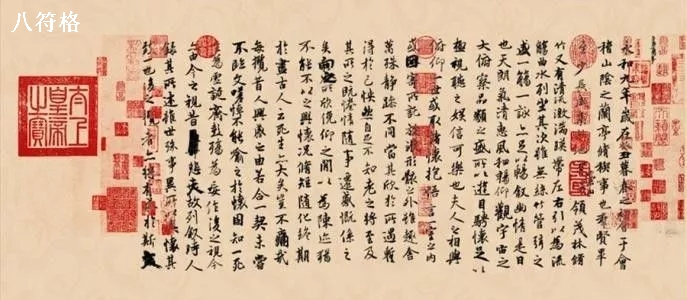 八符格
永和九年歲在癸丑暮春之初會于會
稽山陰之蘭亭脩稧事也群賢畢
至少長咸集領茂林脩
竹又有清流激湍暎帶左右引以為流
觴曲水列坐其次雖無絲竹管弦之
盛一觴一詠亦足以暢敘幽情是日
也天朗氣清惠風和暢仰觀宇宙之
大俯察品類之盛所以遊目騁懷足以
極視聽之娛信可樂也夫人之相與
俯仰一世或取諸懷抱悟言一室之內
或因寄所託放浪形骸之外雖趣舍
萬殊靜躁不同當其欣於所遇暫
得於己怏然自足不知老之將至及
其所之既惓情隨事遷感慨係之
矣向之所欣俛仰之閒以為陳迹猶
不能不以之興懷況脩短隨化終期
於盡古人云死生亦大矣豈不痛哉
每攬昔人興感之由若合一契未嘗
不臨文嗟悼不能喻之於懷固知一死
生為虛誕齊彭殤為妄作後之視今
亦由今之視昔悲夫故列敘時人
錄其所述雖世殊事異所以興懷其
致一也後之攬者亦將有感於斯文
太上皇帝之寶